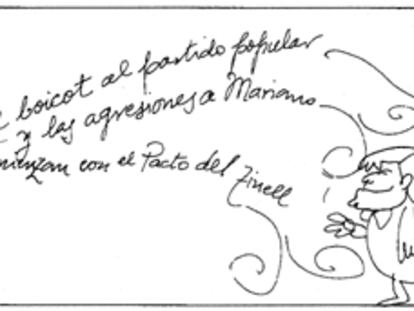 boicot al partido popular
y las agresiones a Mariano
con el Pacto del Tinell